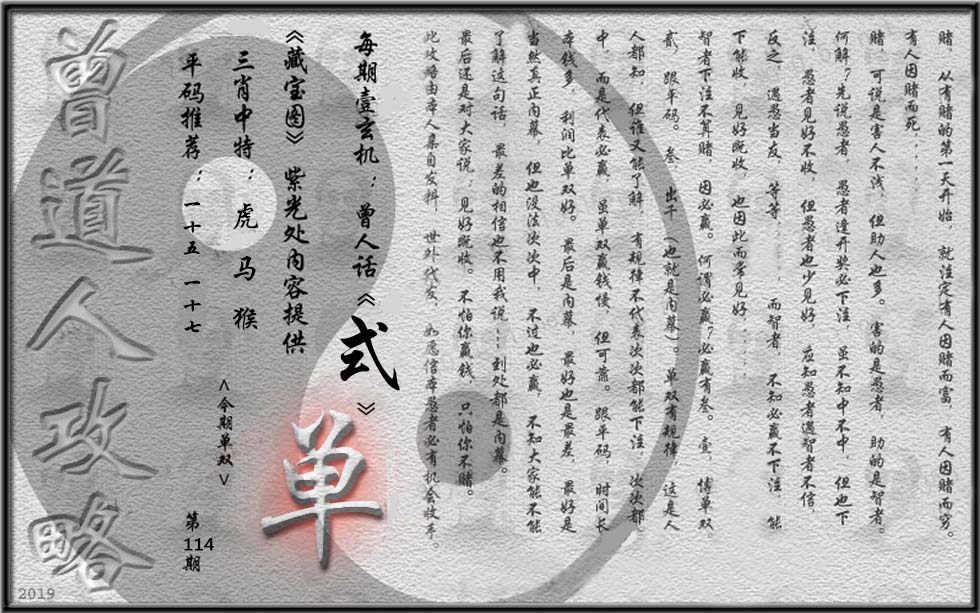 赌，从有赌的第一天开始，就注定有人因赌而富，有人因赌而穷。
有人因赌而死……
赌，可说是害人不浅，但助人也多。害的是愚者，助的是智者。
何解？先说愚者，愚者逢开奖必下注，虽不知中不中，但也下
注，愚者见好不收，但愚者也少见好，应知愚者遇智者不信，
反之，遇愁当友，等等……而智者，不知必赢不下注，能
下能收，见好既收，也因此而常见好……
智者下注不算赌，因必赢。何谓必赢？必赢有叁。壹，博单双，
贰，跟平码。叁，出千（也就是内幕）。单双有规律，这是人
人都知，但谁又能了解，有规律不代表次次都能下注，次次都
中，而是代表必赢，虽单双赢钱慢，但可靠。跟平码，时间长
本钱多，利润比单双好。最后是内幕，最好也是最差，最好是
当然真正内幕，但也没法次次中，不过也必赢，不知大家能不能
了解这句话，最差的相信也不用我说……到处都是内幕。
最后还是对大家说：见好既收。不怕你赢钱，只怕你不赌。
此攻略由本人集自发料，世外代友，如愿信本愚者必有机会收手。
每期壹玄机：曾人话《式》
《藏宝图》紫光处内容提供
单
三肖中特：虎 马 猴
<今期单双>
平码推荐：一十五 一十七
第114期
曾道人攻略
2019